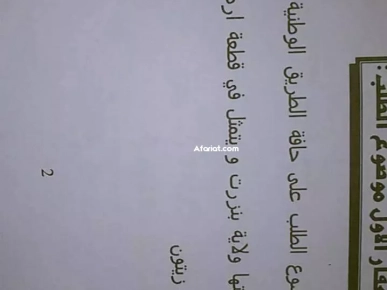 العقار الأول موضوع الطلب :
وع الطلب على حافة الطريق الوطنية
تها ولاية بنزرت و يتمثل في قطعة ارض
زيتون
2
Afariat.com